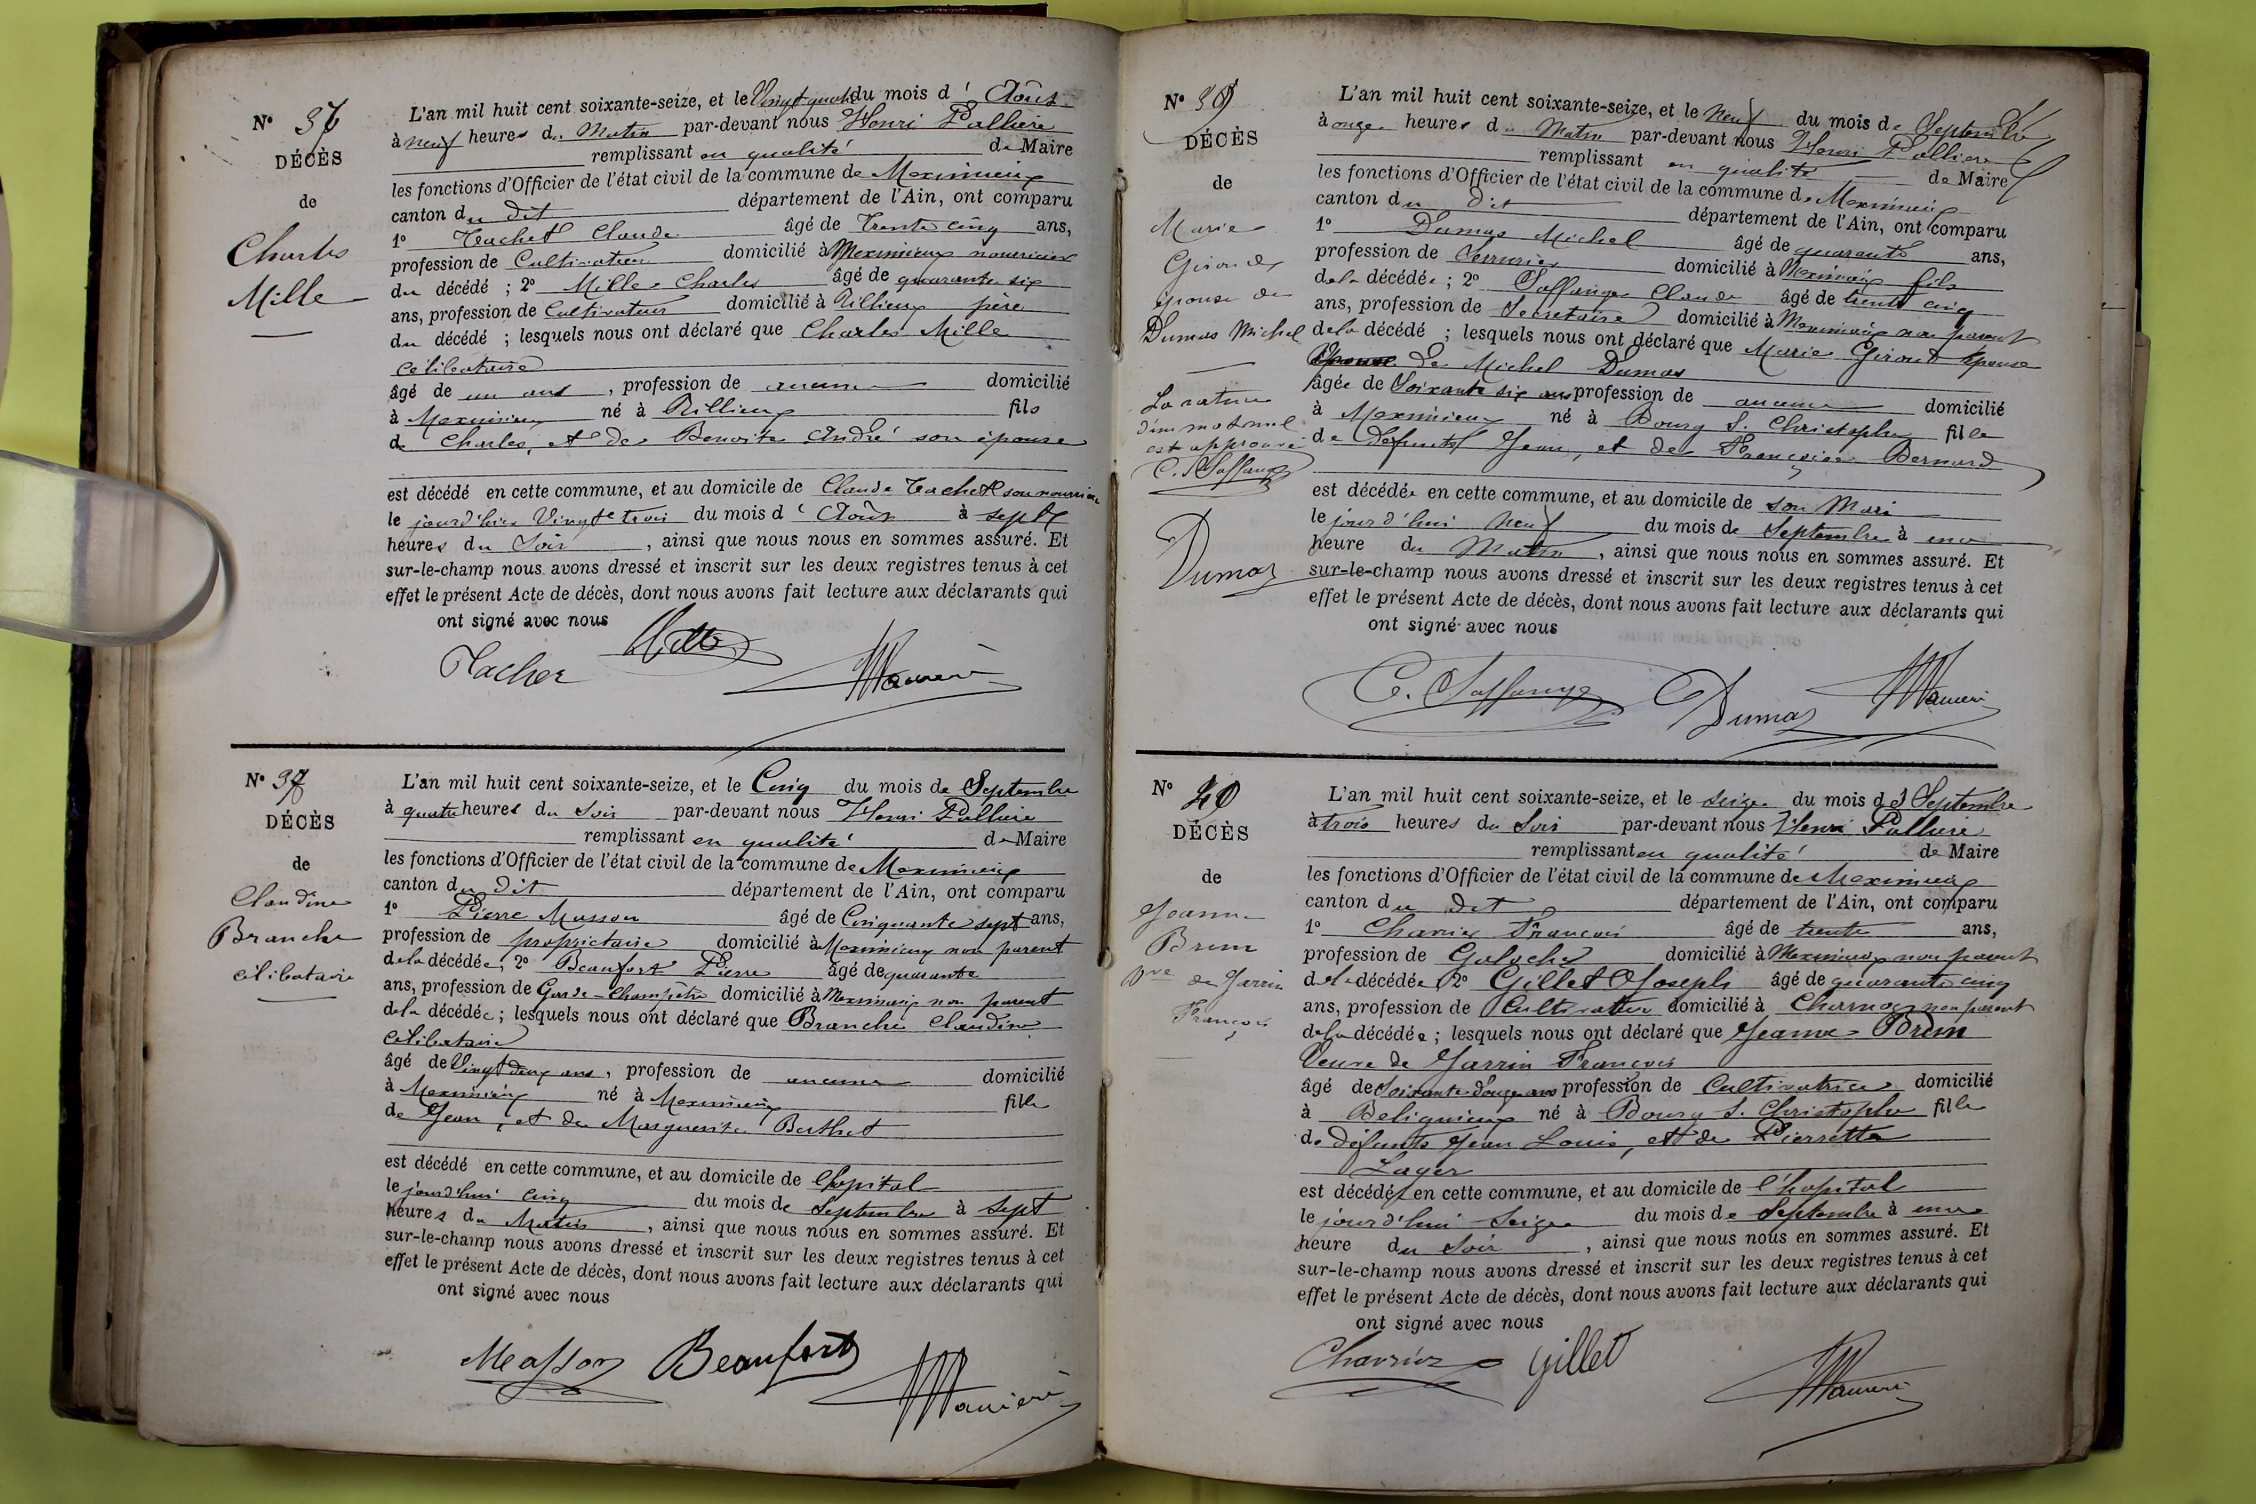 N° 37
DÉCÈS
de
Charles
Mille
L'an mil huit cent soixante-seize, et le Vingt quatre du mois d' Août
à neuf heures du Matin par-devant nous Henri Pallière
remplissant en qualité de Maire
les fonctions d'Officier de l'état civil de la commune de Meximieux
canton du dit département de l'Ain, ont comparu
1° Tachet Claude âgé de Trente cinq ans,
profession de Cultivateur domicilié à Meximieux nourricier
du décédé ; 2° Mille Charles âgé de quarante six
ans, profession de Cultivateur domicilié à Rillieux père
du décédé ; lesquels nous ont déclaré que Charles Mille
célibataire
âgé de un ans , profession de aucune domicilié
à Meximieux né à Rillieux fils
de Charles, et de Benoite André son épouse
est décédé en cette commune, et au domicile de Claude Tachet son nourricier
le jourd'hier Vingt trois du mois d' Août à sept
heures du Soir , ainsi que nous nous en sommes assuré. Et
sur-le-champ nous avons dressé et inscrit sur les deux registres tenus à cet
effet le présent Acte de décès, dont nous avons fait lecture aux déclarants qui
ont signé avec nous
Tachet Mille
N° 38
DÉCÈS
de
Claudine
Branche
célibataire
L'an mil huit cent soixante-seize, et le Cinq du mois de Septembre
à quatre heures du Soir par-devant nous Henri Pallière
remplissant en qualité de Maire
les fonctions d'Officier de l'état civil de la commune de Meximieux
canton du dit département de l'Ain, ont comparu
1° Pierre Masson âgé de Cinquante sept ans,
profession de propriétaire domicilié à Meximieux non parent
de la décédée, 2° Beaufort Pierre âgé de quarante
ans, profession de Garde-Champêtre domicilié à Meximieux non parent
de la décédée ; lesquels nous ont déclaré que Branche Claudine
célibataire
âgé de Vingt deux ans , profession de aucune domicilié
à Meximieux né à Meximieux fille
de Jean, et de Marguerite Berthet
est décédé en cette commune, et au domicile de l'hopital
le jourd'hui cinq du mois de Septembre à sept
heures du Matin , ainsi que nous nous en sommes assuré. Et
sur-le-champ nous avons dressé et inscrit sur les deux registres tenus à cet
effet le présent Acte de décès, dont nous avons fait lecture aux déclarants qui
ont signé avec nous
Masson Beaufort
N° 39
DÉCÈS
de
Marie
Giroud
épouse de
Dumas Michel
La rature
d'un mot nul
est approuvée
C. Saffange
Dumas
L'an mil huit cent soixante-seize, et le Neuf du mois de Septembre
à onze heures du Matin par-devant nous Henri Pallière
remplissant en qualité de Maire
les fonctions d'Officier de l'état civil de la commune de Meximieux
canton du dit département de l'Ain, ont comparu
1° Dumas Michel âgé de quarante ans,
profession de Serrurier domicilié à Meximieux fils
de la décédée ; 2° Saffange Claude âgé de trente cinq
ans, profession de Secretaire domicilié à Meximieux non parent
de la décédé ; lesquels nous ont déclaré que Marie Giroud épouse
de Michel Dumas
âgée de Soixante six ans profession de aucune domicilié
à Meximieux né à Bourg S. Christophe fille
de défunts Jean, et de Françoise Bernard
est décédée en cette commune, et au domicile de son Mari
le jourd'hui Neuf du mois de Septembre à une
heure du Matin , ainsi que nous nous en sommes assuré. Et
sur-le-champ nous avons dressé et inscrit sur les deux registres tenus à cet
effet le présent Acte de décès, dont nous avons fait lecture aux déclarants qui
ont signé avec nous
C. Saffange Dumas
N° 40
DÉCÈS
de
Jeanne
Brun
Vve de Jarrin
François
L'an mil huit cent soixante-seize, et le seize du mois de Septembre
à trois heures du Soir par-devant nous Henri Pallière
remplissant en qualité de Maire
les fonctions d'Officier de l'état civil de la commune de Meximieux
canton du dit département de l'Ain, ont comparu
1° Charrier François âgé de trente ans,
profession de Galoché domicilié à Meximieux non parent
de la décédée 2° Gillet Joseph âgé de quarante cinq
ans, profession de Cultivateur domicilié à Charnoz non parent
de la décédée ; lesquels nous ont déclaré que Jeanne Brun
Veuve de Jarrin François
âgé de Soixante Douze ans profession de Cultivatrice domicilié
à Béligneux né à Bourg S. Christophe fille
de défunts Jean Louis, et de Pierrette
Layer
est décédée en cette commune, et au domicile de l'hopital
le jourd'hui Seize du mois de Septembre à une
heure du Soir , ainsi que nous nous en sommes assuré. Et
sur-le-champ nous avons dressé et inscrit sur les deux registres tenus à cet
effet le présent Acte de décès, dont nous avons fait lecture aux déclarants qui
ont signé avec nous
Charrier Gillet